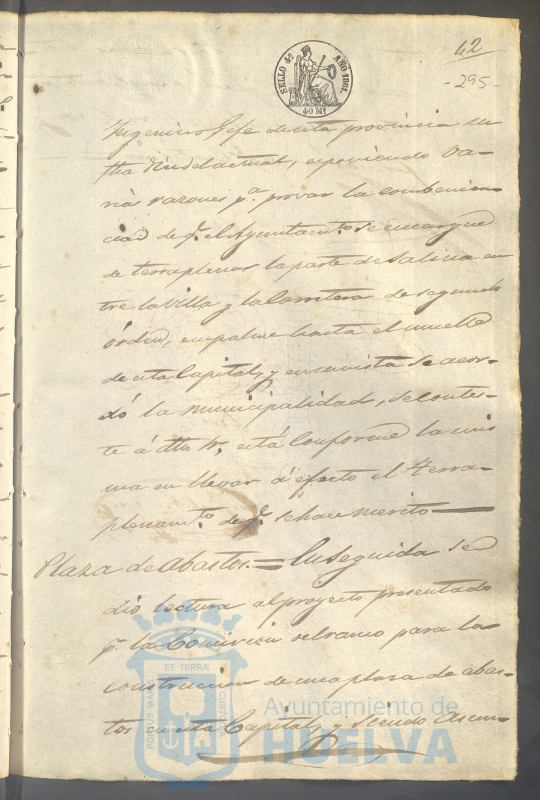 42
-295-
SELLO 4º AÑO 1861.
40 Ms
Ingeniero Jefe de esta provincia su
fha diez del actual, esponiendo va-
rias razones pª. provar la combenien-
cia de q. el Ayuntamto. se encargue
de terraplenar la parte de Salina en
tre la Villa y la Carretera de segundo
órden, empalme hasta el muelle
de esta Capital, y en su vista se acor-
dó la municipalidad, se contes-
te á dho Sr. está conforme la mis
ma en llevar á efecto el terra-
plenamto. de q. se hace merito
Plaza de Abastos. = En seguida se
dió lectura al proyecto presentado
pr. la Comision del ramo para la
construccion de una plaza de abas-
tos en esta Capital, y siendo asun-
PORTUS MARIS ET TERRAE CUSTODIA
Ayuntamiento de
HUELVA